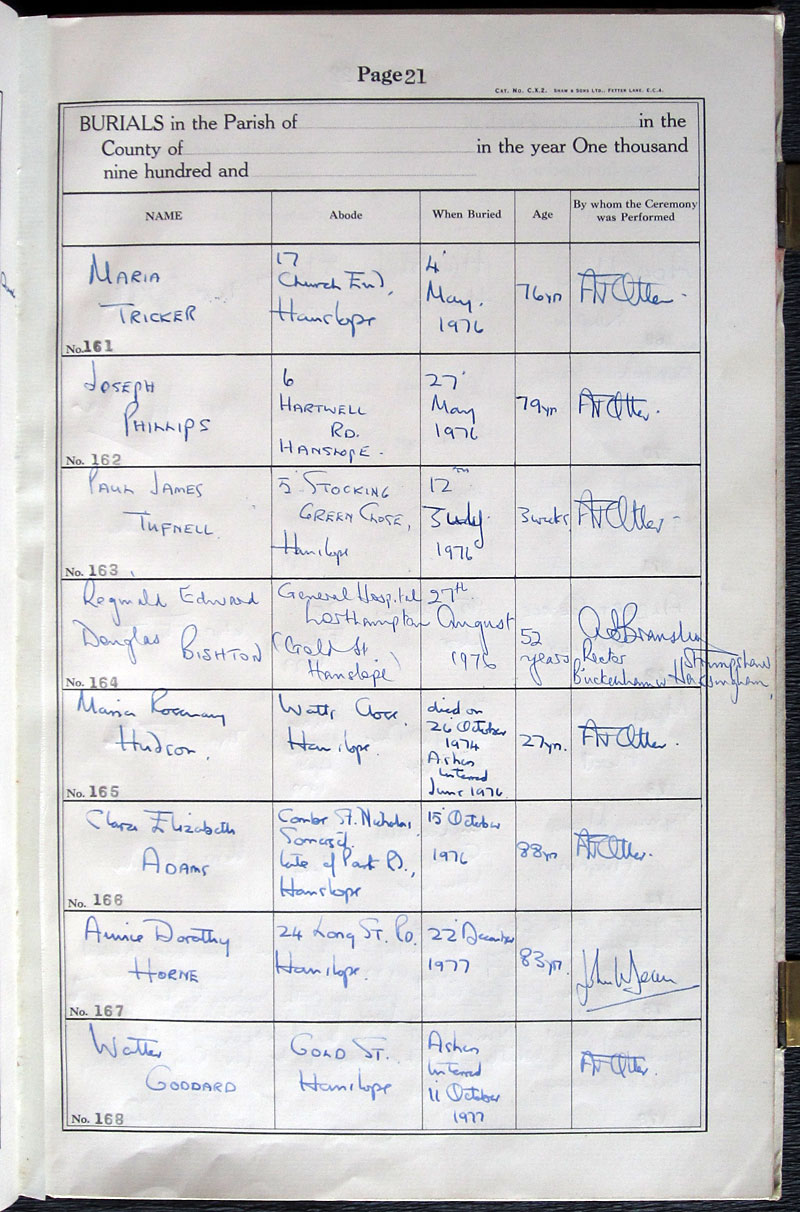 Page 21
CAT. No. C.X.2. SHAW & SONS LTD., FETTER LANE, E.C.4.
BURIALS in the Parish of in the
County of in the year One thousand
nine hundred and
NAME Abode When Buried Age By whom the Ceremony was Performed
MARIA
TRICKER
No. 161
17
Church End,
Hanslope
4
May.
1976
76 yrs
A N Otter
JOSEPH
PHILLIPS
No. 162
6
HARTWELL
RD.
HANSLOPE.
27
May
1976
79 yrs
A N Otter.
PAUL JAMES
TUFNELL
No. 163
5 STOCKING
GREEN CLOSE,
Hanslope
12th
July
1976
3 weeks
A N Otter
Reginald Edward
Douglas BISHTON
No. 164
General Hospital
Northampton
(Gold St
Hanslope)
27th
August
1976
52
years
Rector Strumpshaw
Buckenham w Hassingham,
Maria Rosemary
Hudson.
No. 165
Watts Close.
Hanslope.
died on
26 October
1974
Ashes
Interred
June 1976
27 yrs.
A N Otter.
Clara Elizabeth
ADAMS
No. 166
Combe St. Nicholas,
Somerset.
late of Park Rd.,
Hanslope
15 October
1976
88 yrs
A N Otter.
Annie Dorothy
HORNE
No. 167
24 Long St. Rd.
Hanslope.
22 December
1977
83 yrs.
Walter
GODDARD
No. 168
GOLD ST.
Hanslope
Ashes
Interred
11 October
1977
A N Otter.